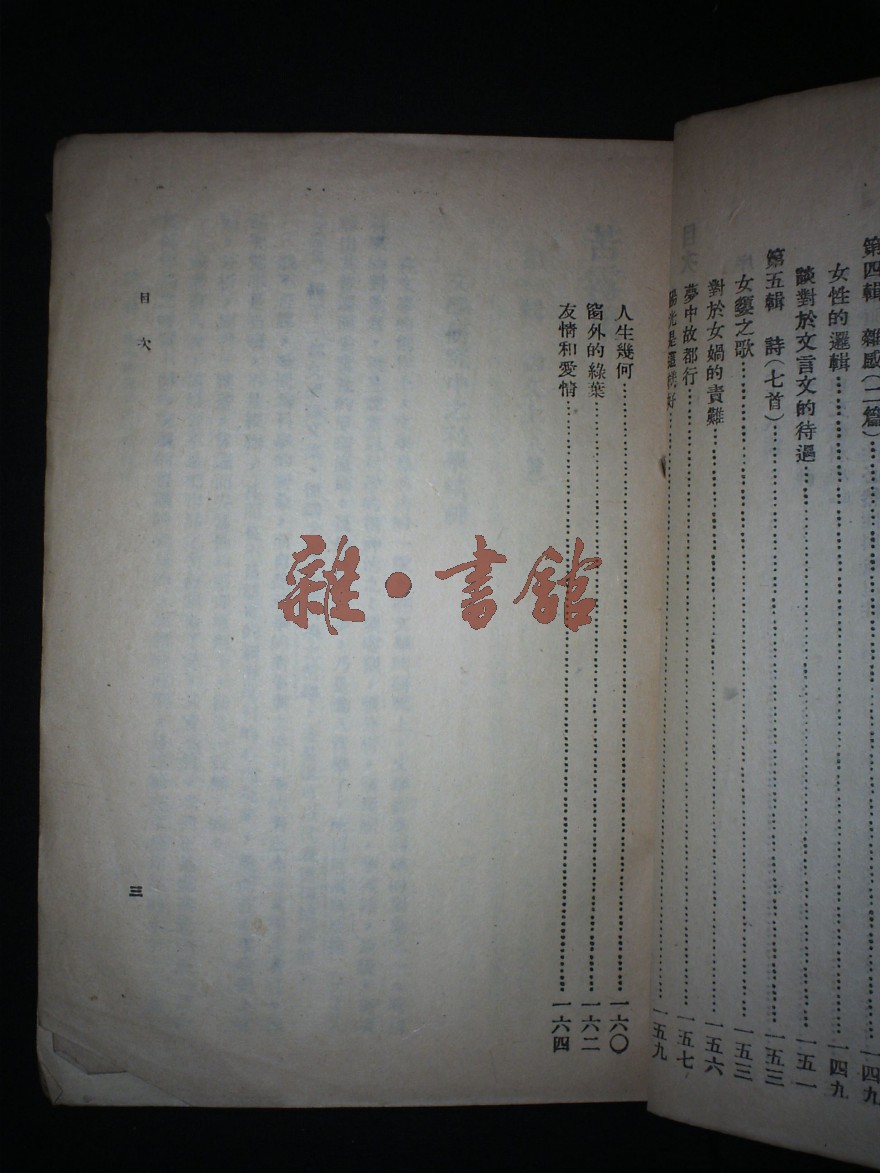 第四輯　雜感（二篇）……一四九
女性的邏輯……一四九
談對於文言文的待遇……一五一
第五輯　詩（七首）……一五三
女嬰之歌……一五三
對於女媧的責難……一五六
夢中故都行……一五七
陽光是這樣好……一五九
人生幾何……一六〇
窗外的綠葉……一六二
友情和愛情……一六四
目次
三
雜·書館